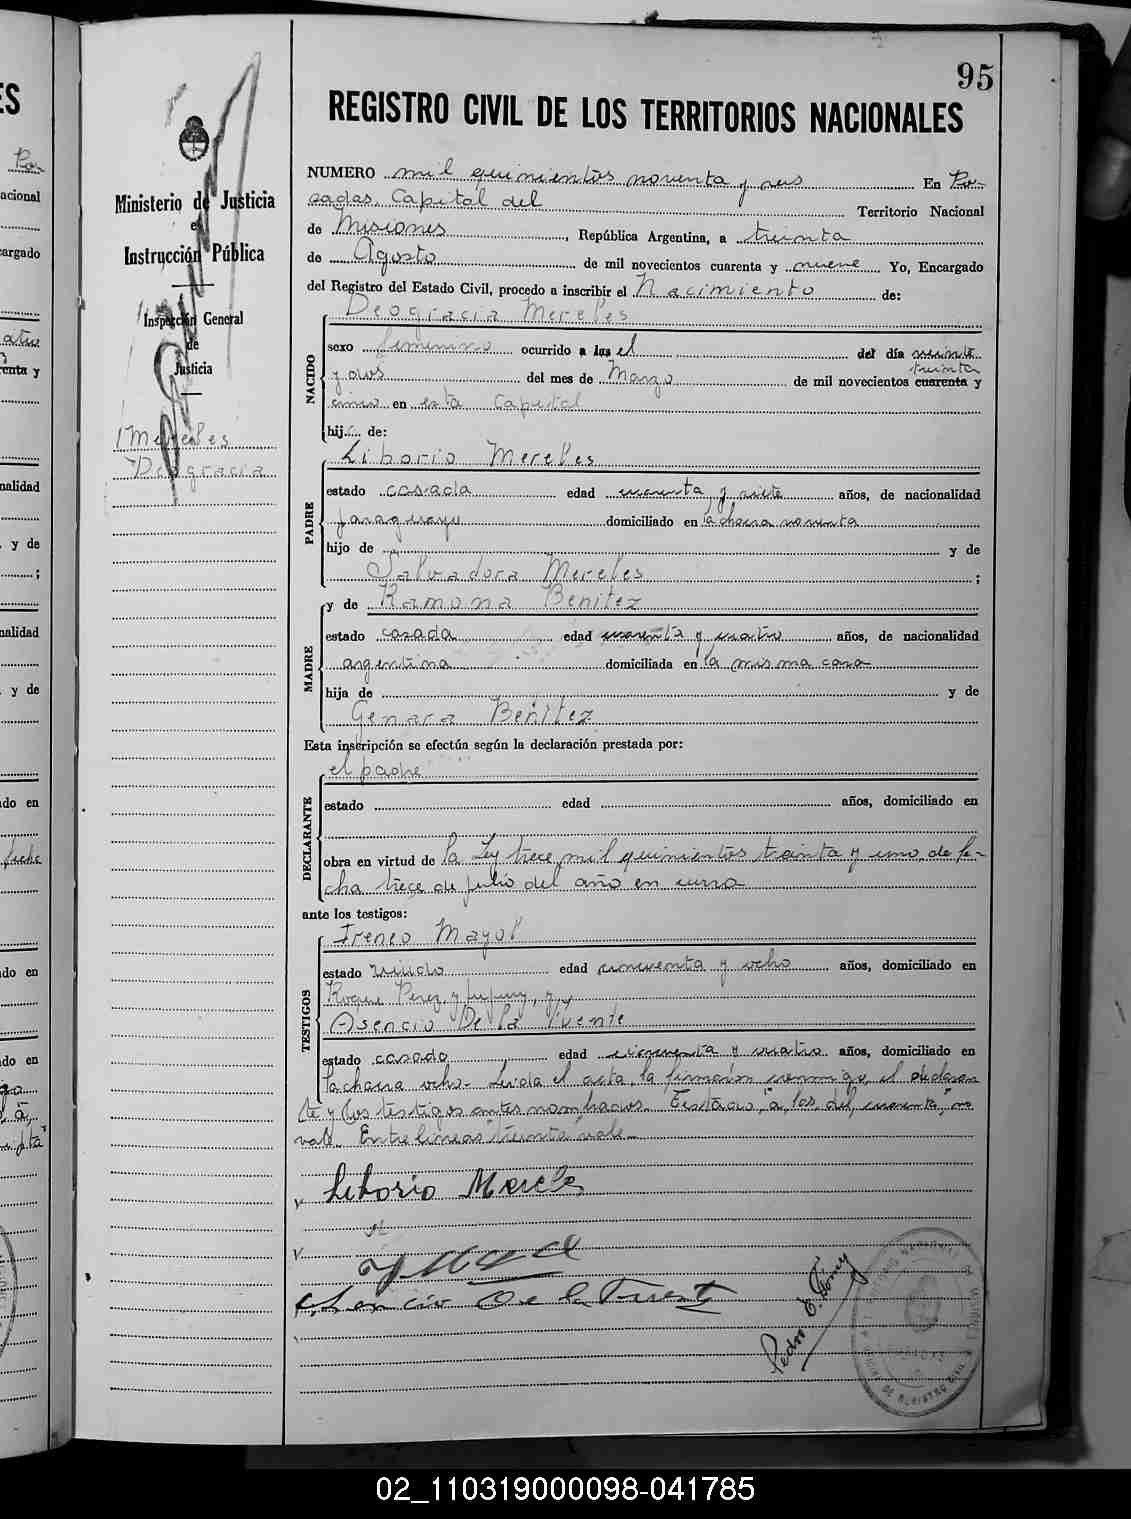 95
REGISTRO CIVIL DE LOS TERRITORIOS NACIONALES
Ministerio de Justicia
e
Instrucción Pública
Inspección General
de
Justicia
Mereles
Deogracia
NUMERO mil quinientos noventa y seis En Po-
sadas Capital del Territorio Nacional
de Misiones, República Argentina, a treinta
de Agosto de mil novecientos cuarenta y nueve Yo, Encargado
del Registro del Estado Civil, procedo a inscribir el Nacimiento de:
Deogracia Mereles
NACIDO
sexo femenino ocurrido a las el del día veinte
treinta
y dos del mes de Marzo de mil novecientos cuarenta y
cinco en esta Capital
hij... de:
Liborio Mereles
PADRE
estado casada edad cuarenta y siete años, de nacionalidad
paraguayo domiciliado en la chacra noventa
hijo de y de
Salvadora Mereles ;
y de Ramona Benitez
MADRE
estado casada edad cuarenta y cuatro años, de nacionalidad
argentina domiciliada en la misma casa
hija de y de
Genara Benitez
Esta inscripción se efectúa según la declaración prestada por:
el padre
DECLARANTE
estado edad años, domiciliado en
obra en virtud de la Ley trece mil quinientos treinta y uno de fe-
cha trece de julio del año en curso
ante los testigos:
Ireneo Mayol
TESTIGOS
estado viudo edad cincuenta y ocho años, domiciliado en
Roque Perez y Jujuy, y
Asencio De la Fuente
estado casado edad cincuenta y cuatro años, domiciliado en
la chacra ocho. Leida el acta, la firmaron conmigo, el declaran
te y los testigos antes nombrados. Testado "a las del, cuarenta", no
vale. Entre lineas "treinta" vale.
Liborio Mereles
Asencio De la Fuente
Pedro E.
02_110319000098-041785